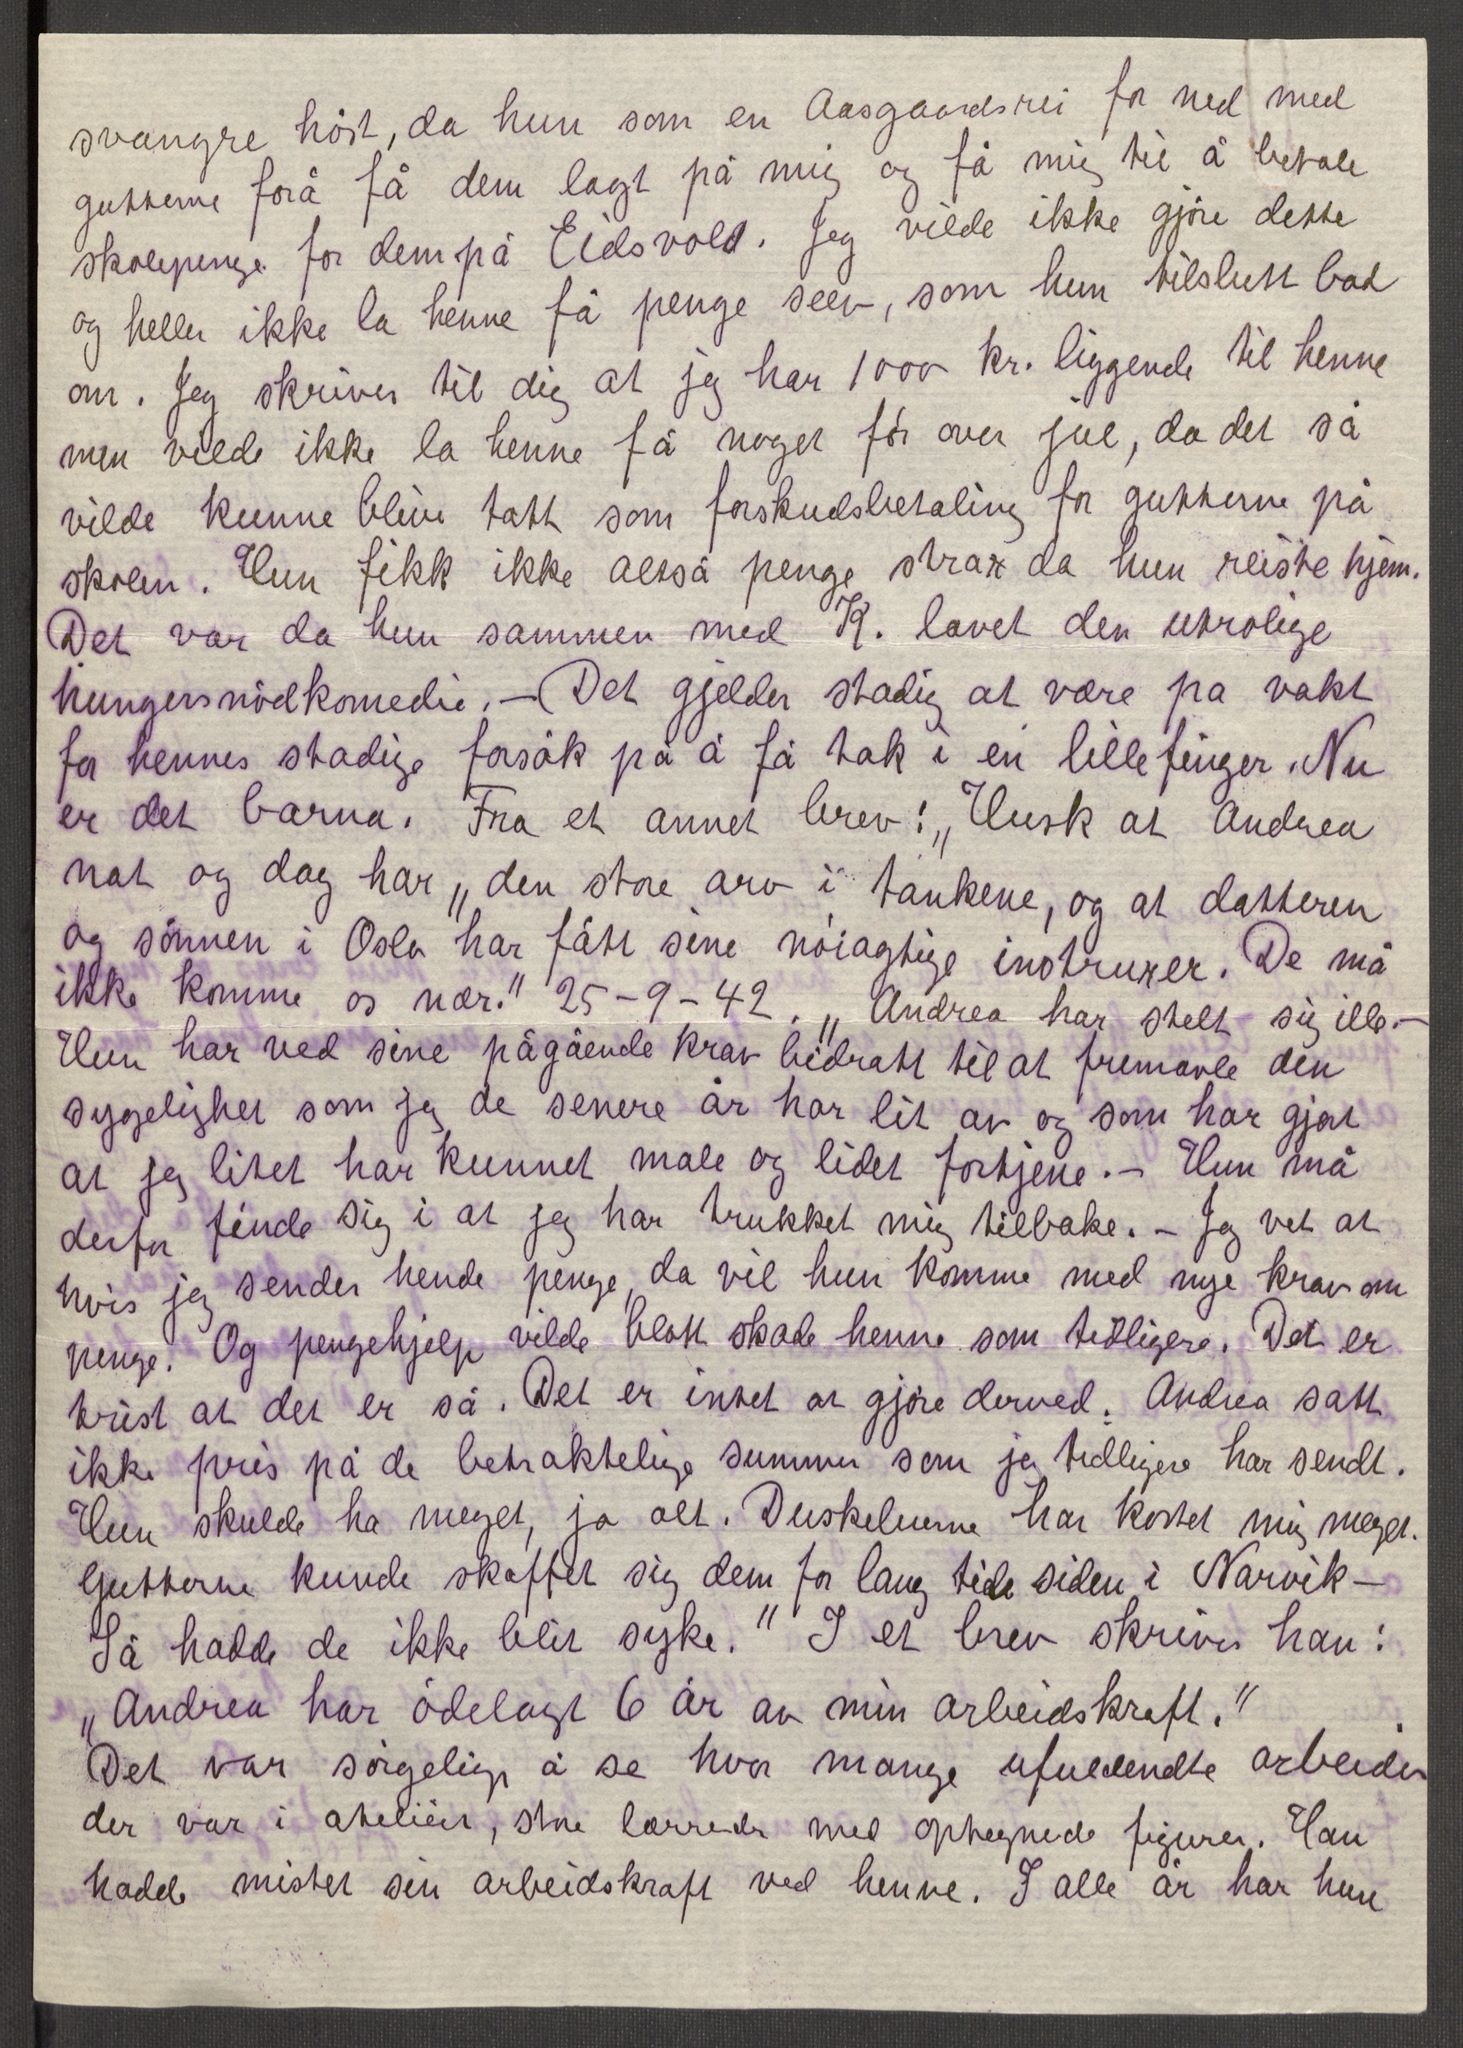 svangre höst, da hun som en Aasgaardsrei for ned med
gutterne forå få dem lagt på mig og få mig til å betale
skolepenge for dem på Eidsvold. Jeg vilde ikke gjöre dette
og heller ikke la henne få penge selv, som hun tilslutt bad
om. Jeg skriver til dig at jeg har 1000 kr. liggende til henne
men vilde ikke la henne få noget för over jul, da det så
vilde kunne blive tatt som forskudsbetaling for gutterne på
skolen. Hun fikk ikke altså penge strax da hun reiste hjem.
Det var da hun sammen med K. lavet den utrolige
hungersnödkomedie. – Det gjelder stadig at være pa vakt
for hennes stadige forsök på å få tak i en lillefinger. Nu
er det barna. Fra et annet brev: „Husk at Andrea
nat og dag har „den store arv i tankene, og at datteren
og sönnen i Oslo har fått sine nöiagtige instruxer. De må
ikke komme os nær." 25-9-42. „Andrea har stelt sig ille. –
Hun har ved sine pågående krav bidratt til at fremavle den
sygelighet som jeg de senere år har lit av og som har gjort
at jeg litet har kunnet male og lidet fortjene. – Hun må
derfor finde sig i at jeg har trukket mig tilbake. – Jeg vet at
hvis jeg sender hende penge, da vil hun komme med nye krav om
penge. Og pengehjelp vilde blott skade henne som tidligere. Det er
trist at det er så. Det er intet at gjöre derved. Andrea satt
ikke pris på de betraktelige summer som jeg tidligere har sendt.
Hun skulde ha meget, ja alt. Duskeluerne har kostet mig meget.
Gutterne kunde skaffet sig dem for lang tid siden i Narvik –
Så hadde de ikke blit syke." I et brev skriver han:
„Andrea har ödelagt 6 år av min arbeidskraft."
Det var sörgelig å se hvor mange ufuldendte arbeider
der var i atelièr, store lærreder med optegnede figurer. Han
hadde mistet sin arbeidskraft ved henne. I alle år har hun